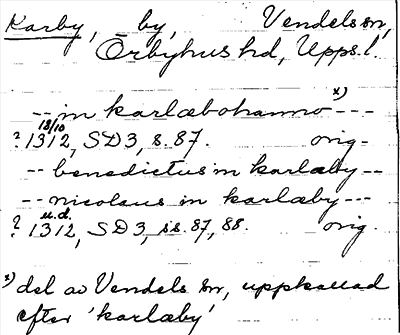 Karby, by, Vendels sn,
Örbyhus hd, Upps.l.
-- in karlæbohamno x) ---
? 18/10 1312, SD3, s. 87. orig.
-- benedictus in karlæby --
-- nicolaus in karlæby ---
? u.d. 1312, SD3, ss. 87, 88. orig.
x) del av Vendels sn, uppkallad
efter 'karlæby'